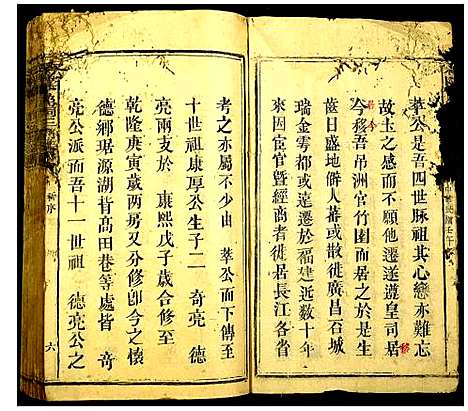 莘公是吾四世脉祖其心戀亦難忘
故玉之感而不願他遷遂遵皇司居
今移吾吊洲官竹園居之於是生
齒日盛地僻人蕃或散徙廣昌石城
瑞金雩都或遠遷於福建近数十年
來因宦官暨經商者徙居長江各省
考之亦屬不少由 莘公而下傳至
十世祖康厚公生子二 奇亮 德
亮兩支於 康熙戊子歲合修至
乾隆庚寅歲两房又分修卽今之懷
德鄉琚源湖背高田巷等處皆 奇
亮公派而吾十一世祖 德亮公之
六